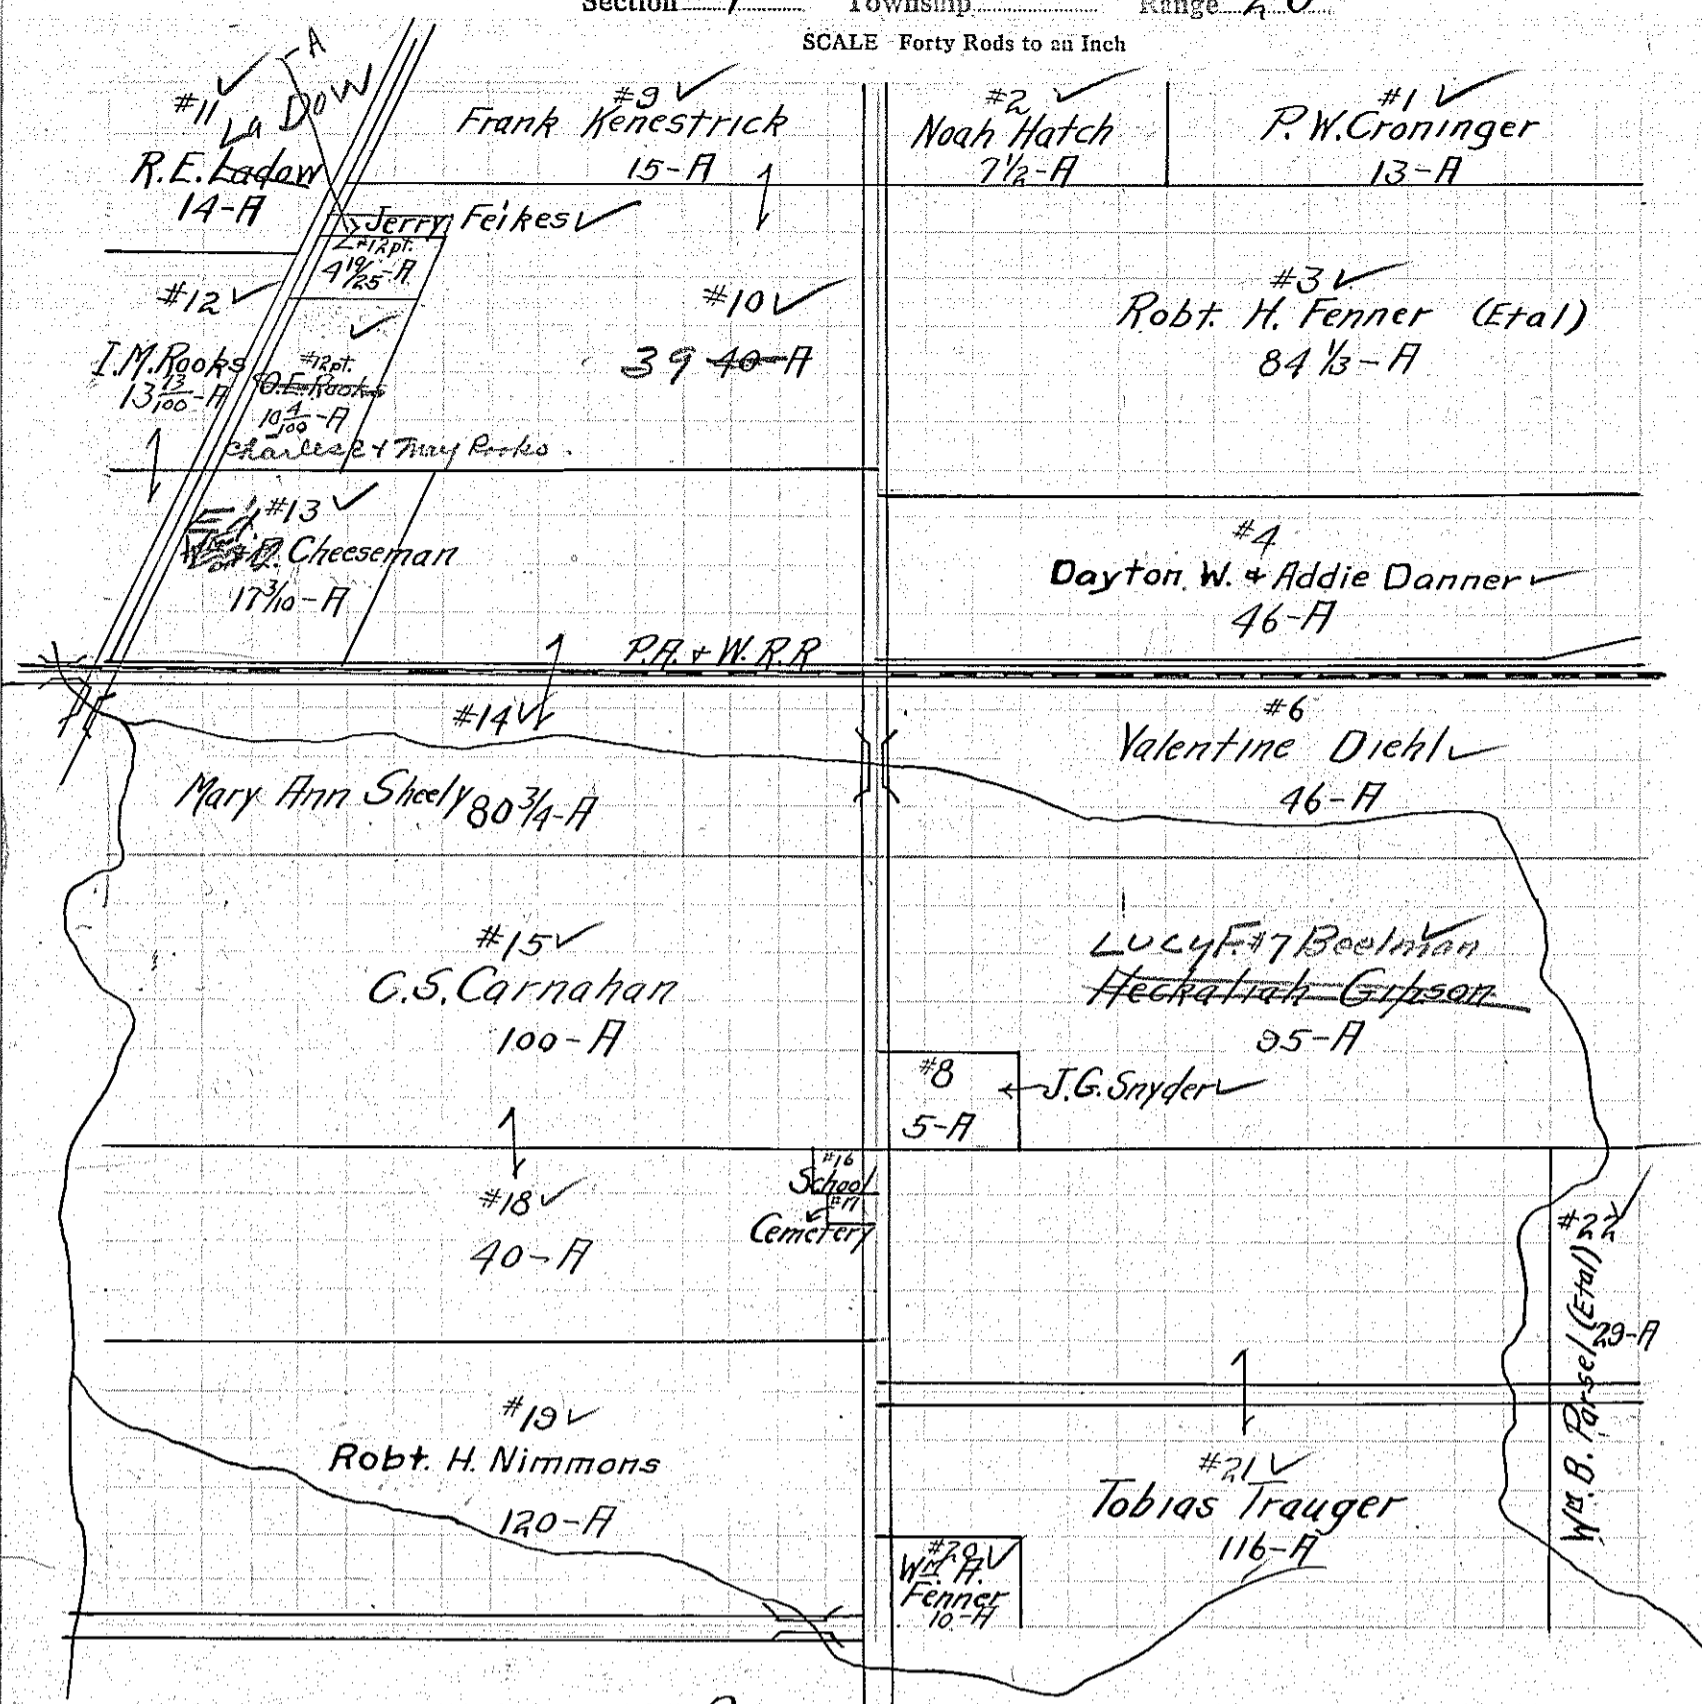 Section 1 Township Range 20
SCALE Forty Rods to an Inch
A
#11
La Dow
R.E. Ladow
14-A
#9
Frank Kenestrick
15-A
#2
Noah Hatch
7 1/2-A
#1
P.W. Croninger
13-A
Jerry Feikes
#12 pt.
4 19/25-A
#12
I.M. Rooks
13 13/100-A
#12 pt.
O.E. Rooks
10 4/100-A
Charles E & May Rooks.
#10
39 40-A
#3
Robt. H. Fenner (Etal)
84 1/3-A
#13
Cheeseman
17 3/10-A
#4
Dayton W. & Addie Danner
46-A
P.A. & W. R.R
#14
Mary Ann Sheely 80 3/4-A
#6
Valentine Diehl
46-A
#15
C.S. Carnahan
100-A
Lucy F. #7 Beelman
Heckaliah Gipson
95-A
#8
5-A
J.G. Snyder
#16
School
#17
Cemetery
#18
40-A
#22
Wm. B. Parsel (Etal)
29-A
#19
Robt. H. Nimmons
120-A
#21
Tobias Trauger
116-A
#20
Wm. A.
Fenner
10-A